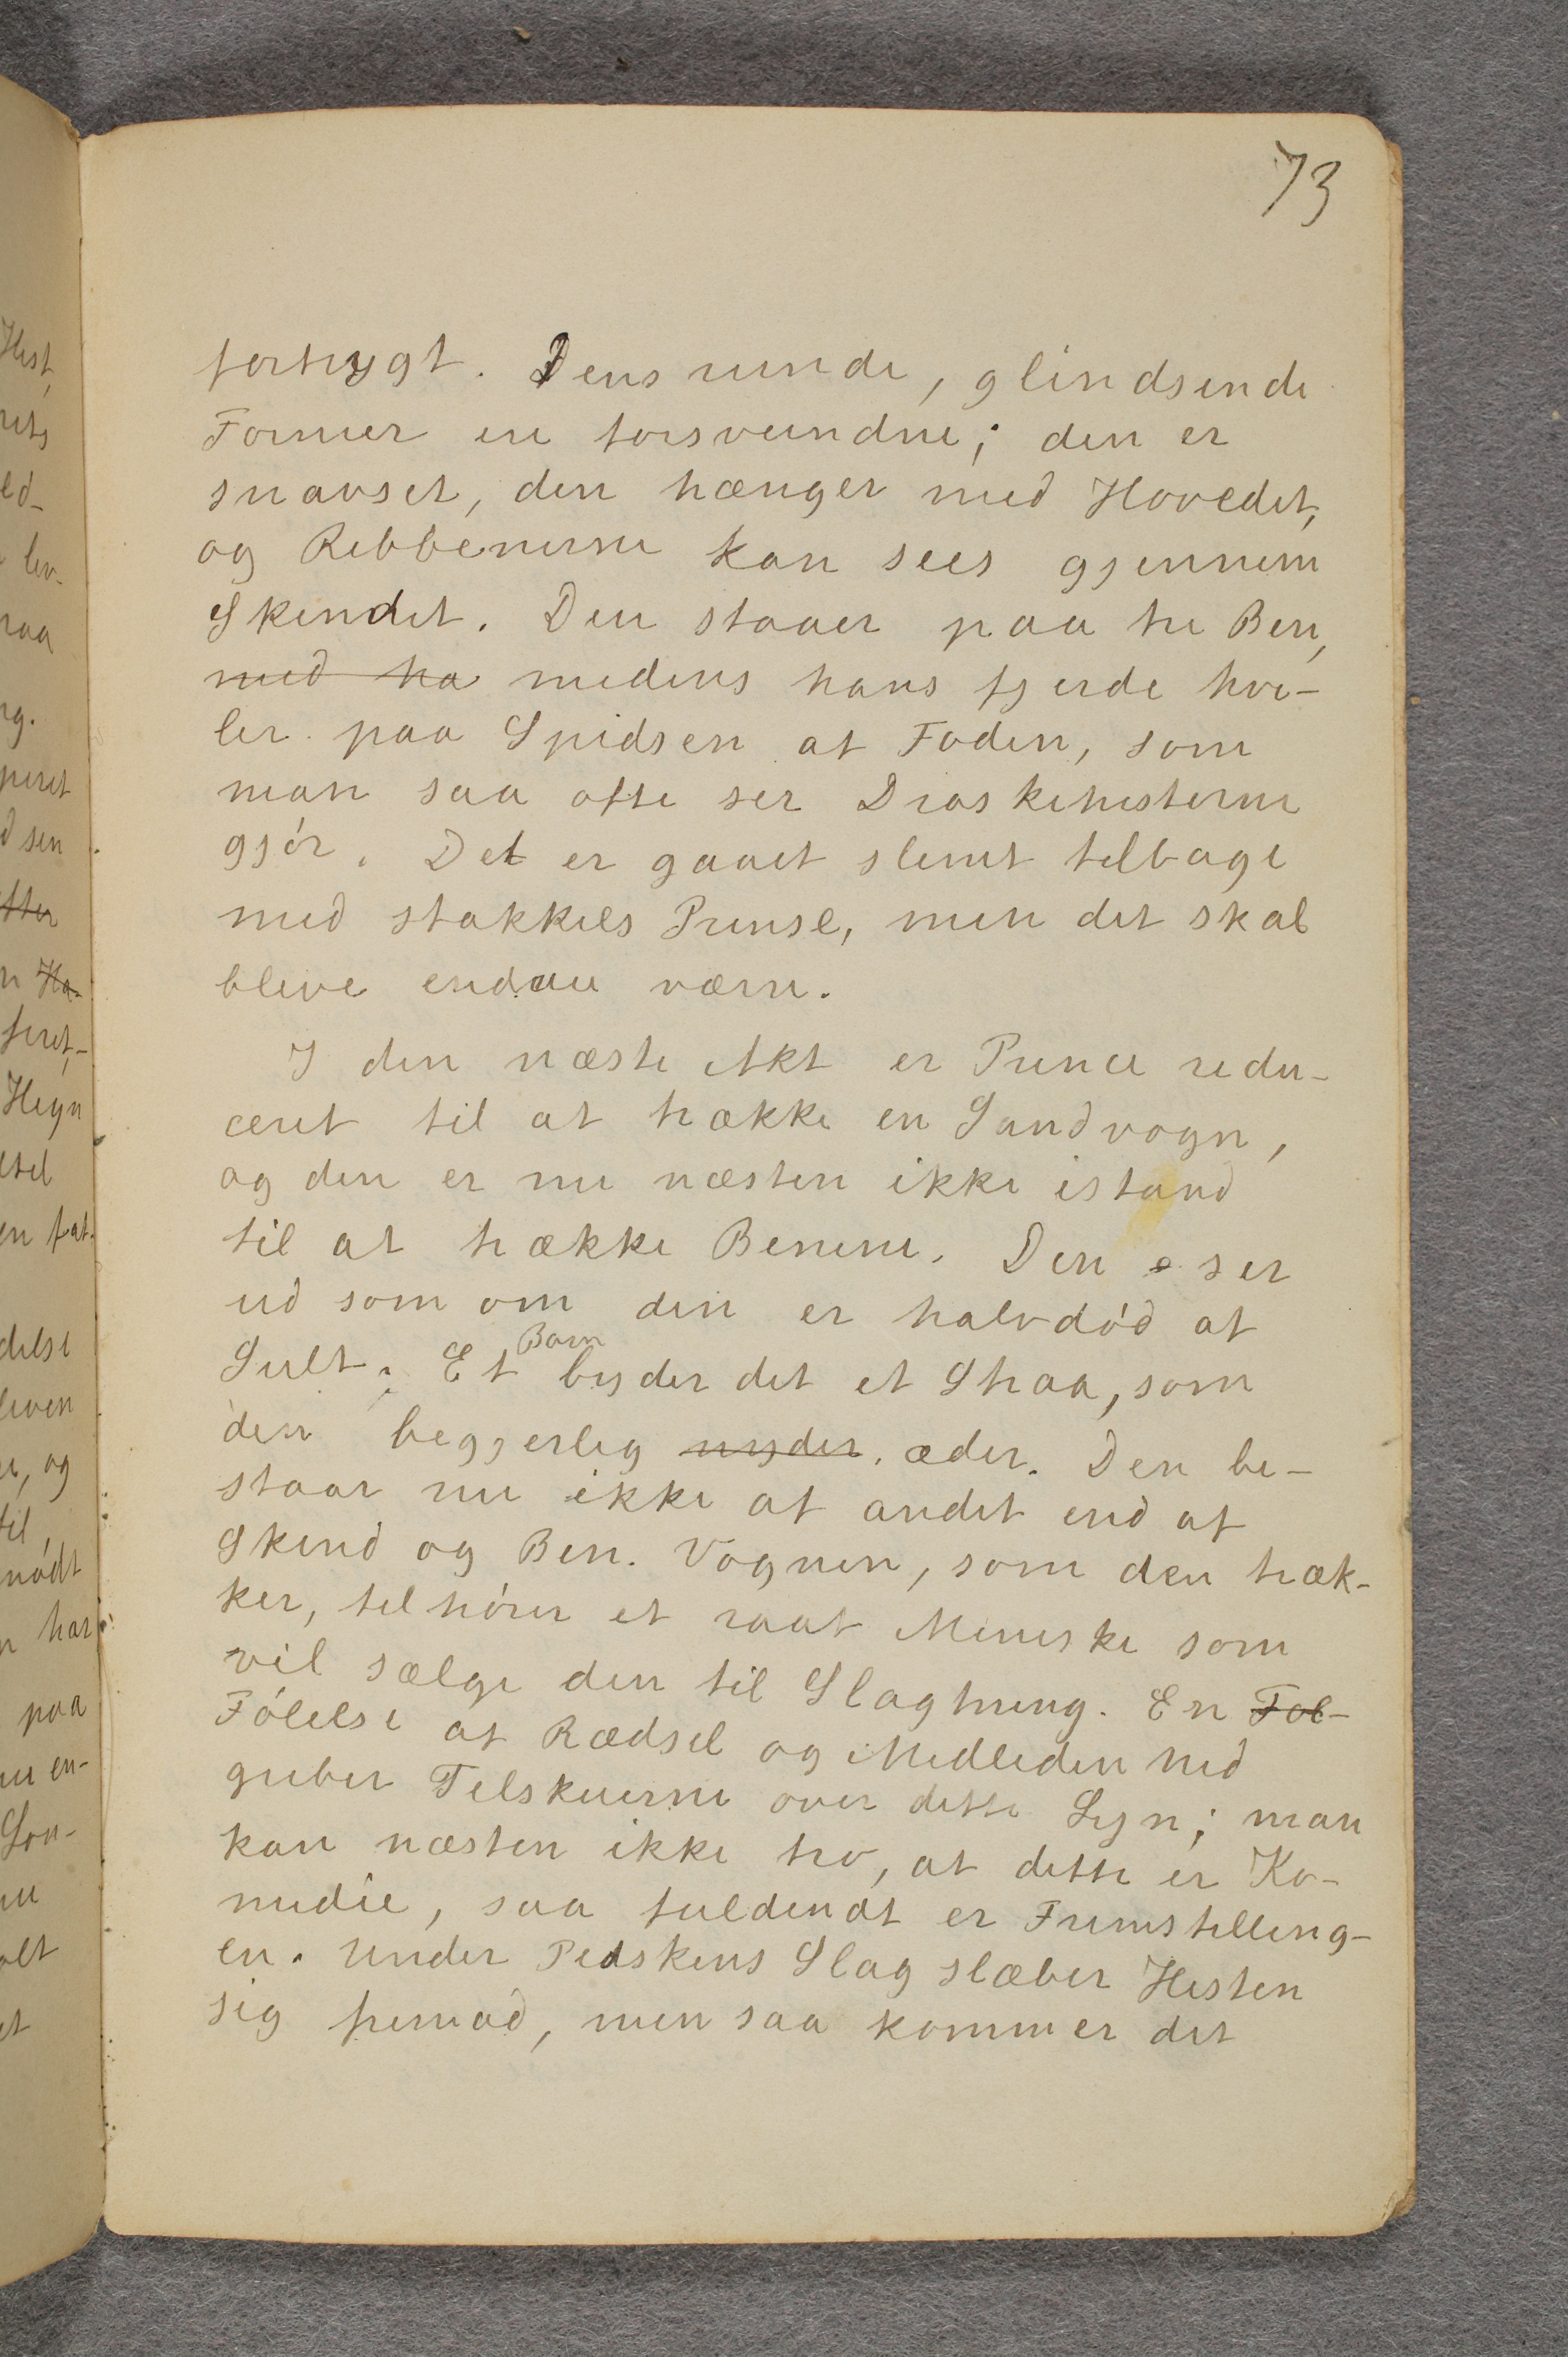 73
fortrygt. Dens runde, glindsende
Former ere forsvundne; den er
snavset, den hænger med Hovedet,
og Ribbenerne kan sees gjennem
Skendet. Den staaer paa tre Ben,
med ha medens hans fjerde hvi-
ler paa Spidsen af Foden, som
man saa ofte ser Droskehesterne
gjør. Det er gaaet slemt tilbage
med stakkels Prinse, men det skal
blive endau værre.
I den næste Akt er Prince redu-
ceret til at trække en Sandvogn,
og den er nu næsten ikke istand
til at trække Benene. Den e ser
ud som om den er halvdød af
Sult. Et Barn byder det et Straa, som
den begjerlig nyder, æder. Den be-
staar nu ikke af andet end af
Skind og Ben. Vognen, som den træk-
ker, tilhører et raat Menneske som
vil sælge den til Slagtning. En Føl-
Følelse af Rædsel og Medlidenhed
griber Tilskuerne over dette Syn; man
kan næsten ikke tro, at dette er Ko-
medie, saa fuldendt er Fremstilling-
en. Under Pidskens Slag slæber Hesten
sig fremad, men saa kommer det
Hest,
raa
feret,-
Hegn
delse
e, og
til,
nødt
har
paa
Son-